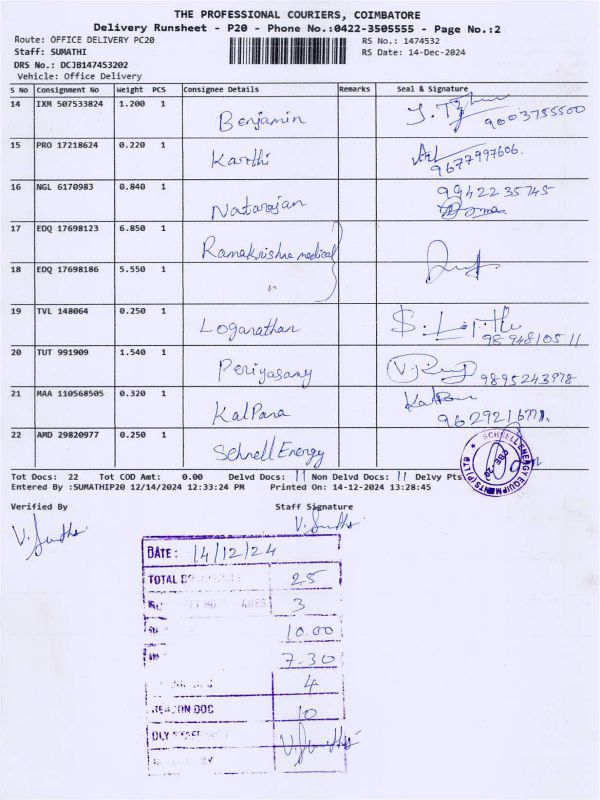 THE PROFESSIONAL COURIERS, COIMBATORE
Delivery Runsheet - P20 - Phone No.:0422-3505555 - Page No.:2
Route: OFFICE DELIVERY PC20 RS No.: 1474532
Staff: SUMATHI RS Date: 14-Dec-2024
DRS No.: DCJB147453202
Vehicle: Office Delivery
S No Consignment No Weight PCS Consignee Details Remarks Seal & Signature
14 IXM 507533824 1.200 1 Benjamin 9003755500
15 PRO 17218624 0.220 1 Karthi 9677997606.
16 NGL 6170983 0.840 1 Natarajan 9942235745
17 EDQ 17698123 6.850 1 Ramakrishna medical
18 EDQ 17698186 5.550 1 "
19 TVL 148064 0.250 1 Loganathan 9894810511
20 TUT 991909 1.540 1 Periyasamy 9895243978
21 MAA 110568505 0.320 1 KalPana
22 AMD 29820977 0.250 1 Schnell Energy
SCHNELL ENERGY EQUIPMENTS (P) LTD
Tot Docs: 22 Tot COD Amt: 0.00 Delvd Docs: 11 Non Delvd Docs: 11 Delvy Pts
Entered By :SUMATHIP20 12/14/2024 12:33:24 PM Printed On: 14-12-2024 13:28:45
Verified By Staff Signature
DATE: 14/12/24
TOTAL 25
3
10.00
7.30
4
REASON DOC 10
DLY